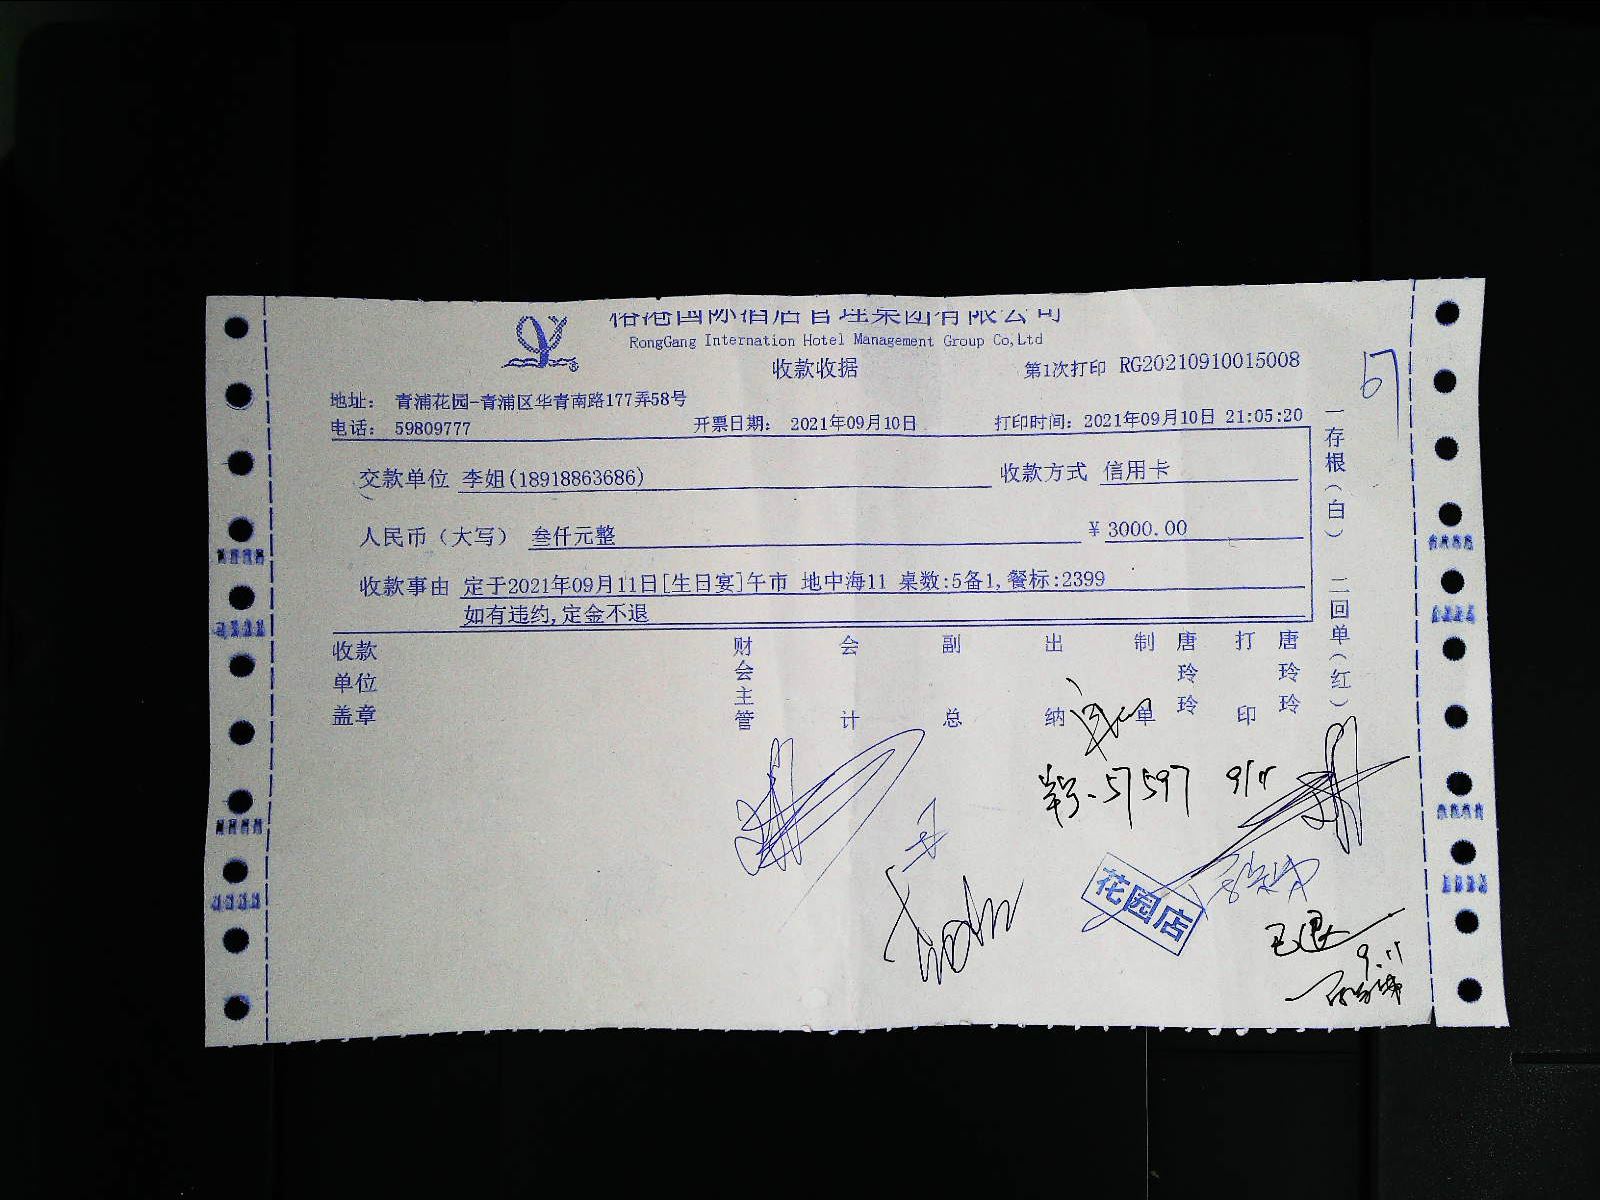 榕港国际酒店管理集团有限公司
RongGang Internation Hotel Management Group Co,Ltd
收款收据
第1次打印 RG20210910015008
57
地址: 青浦花园-青浦区华青南路177弄58号
电话: 59809777 开票日期: 2021年09月10日 打印时间: 2021年09月10日 21:05:20
交款单位 李姐(18918863686) 收款方式 信用卡
人民币(大写) 叁仟元整 ¥3000.00
收款事由 定于2021年09月11日[生日宴]午市 地中海11 桌数:5备1,餐标:2399
如有违约,定金不退
一存根(白) 二回单(红)
收款单位盖章 财会主管 会计 副总 出纳 制单 唐玲玲 打印 唐玲玲
单号.57597 9/11
花园店
已退
9.11